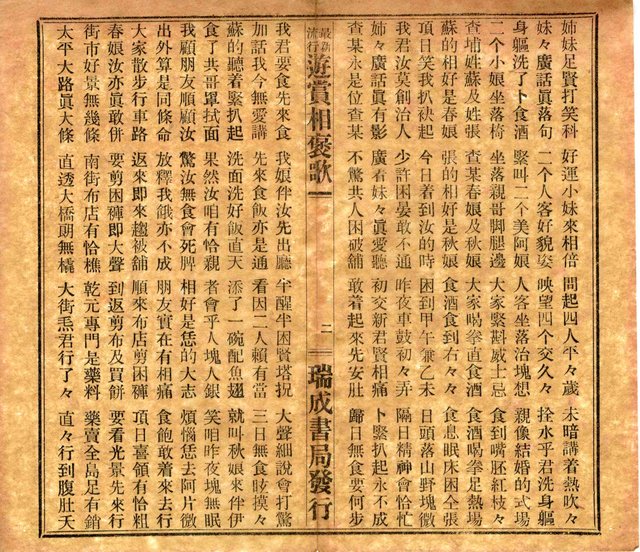 姉妹足賢打笑科 好運小妹來相倍 問起四人平々歲 未暗講着熱吹々
妹々廣話眞落句 二个人客好貌姿 映望四个交久々 拴水乎君洗身軀
身軀洗了卜食酒 緊叫二个美阿娘 人客坐落治塊想 親像結婚的式場
二个小娘坐落椅 坐落親哥脚腿邊 大家緊斟威士忌 食到嘴胚紅枝々
查埔姓蘇及姓張 查某春娘及秋娘 大家喝拳直食酒 食酒喝拳足熱場
蘇的相好是春娘 張的相好是秋娘 食酒食到右々々 食息眠床困全張
頂日笑我扒袂起 今日着到汝的時 困到甲午兼乙未 日頭落山野塊微
我君汝莫創治人 少許困晏敢不通 昨夜車鼓初々弄 隔日精神會恰忙
姉々廣話眞有影 廣看妹々眞愛聽 初交新君賢相痛 卜緊扒起永不成
查某永是位查某 不驚共人困破舖 敢着起來先安肚 歸日無食要何步
最新流行 遊賞相褒歌 二 瑞成書局發行
我君要食先來食 我娘伴汝先出廳 半醒半困賢塔捾 大聲細說會打驚
加話我今無愛講 先來食飯亦是通 看因二人賴有當 三日無食眩摸々
蘇的聽着緊扒起 洗面洗好飯直天 添了一碗配魚翅 就叫秋娘來伴伊
食了共哥罩拭面 果然汝咱有恰親 者會乎人塊人銀 笑咱昨夜塊無眠
我顧朋友順顧汝 驚汝無食會死脾 相好是恁的大志 煩惱恁去阿片微
出外算是同條命 放釋我餓亦不成 朋友實在有相痛 食飽敢着來去行
大家散步行車路 返來即來趨被舖 順來布店剪困褲 頂日喜領有恰粗
春娘汝亦眞敢併 要剪困褲即大聲 到返剪布及買餅 要看光景先來行
街市好景無幾條 南街布店有恰樵 乾元專門是藥料 藥賣全島足有銷
太平大路眞大條 直透大橋頭無橇 大街炁君行了々 直々行到腹肚夭